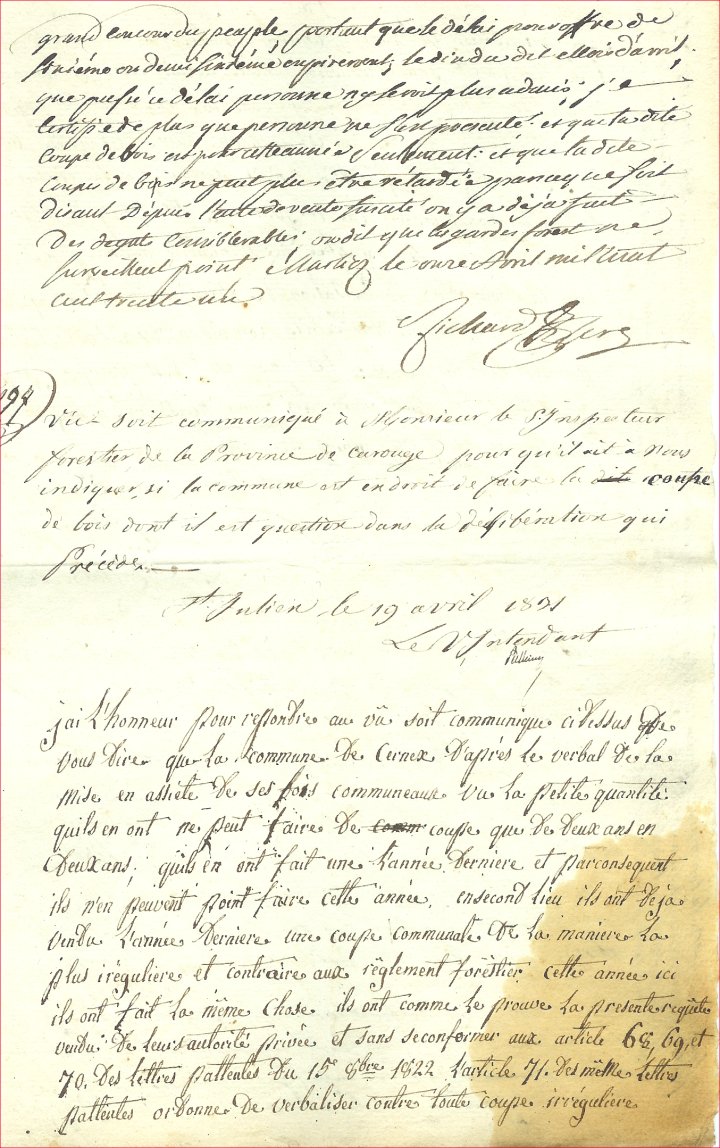 grand concour du peuple portant que le délai pour offre de
sixiéme ou demi sixiéme expirerent, le dix du dit Mois d'avril,
que passé ce délai personne n'y seroit plus admis; je
Certifie de plus que personne ne s'est presenté et que la dite
Coupe de bois est pour cette année Seulement. et que la dite
Coupes de bois ne peut plus être rétardée parceque soit
disant Dépuis l'acte de vente suscité on y a déjà fait
Des dégats Considerables, on dit que les gardes forest ne
surveillent point Marlioz le onze Avril mil huit
cent trente un.
Richard
197
Vu soit communiqué à Monsieur le S. Inspecteur
forestier de la Province de Carouge pour qu'il ait à nous
indiquer, si la commune est endroit de faire la dit coupe
de bois dont il est question dans la délibération qui
Précéde.
St. Julien, le 19 avril 1831
Le V. Intendant
j'ai L'honneur pour repondre au vû soit communique cidessus de
vous Dire que La Commune De Cernex D'après Le verbal De La
mise en assiéte De ses bois communeaux vu La petite quantité
quils en ont ne peut faire De comm coupe que De Deux ans en
Deux ans; quils en ont fait une L'année Derniere et parconsequent
ils n'en peuvent point faire cette année. ensecond Lieu ils ont Deja
vendu L'année Derniere une coupe communale De La maniere La
plus iréguliere et contraire aux réglement forestier. cette année ici
ils ont fait La même Chose ils ont comme Le prouve La presente requête
vendu De leurs autorité privée et sans seconformer aux article 68, 69, et
70. Des Lettres pattentes Du 15e 8bre 1822 L'article 71. Des même Lettres
pattentes ordonne De verbaliser contre toute coupe irréguliere